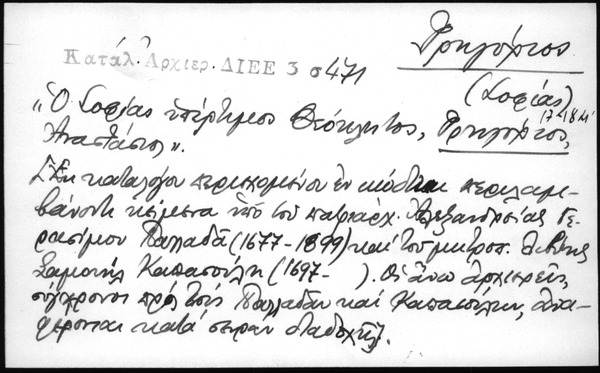 Γρηγόριος
Κατάλ. Ἀρχιερ. ΔΙΕΕ 3 σ 471
(Σοφίας)
17-18 αἰ
"Ὁ Σοφίας ὑπέρτιμος Θεόκλητος, Γρηγόριος,
Ἀναστάσιος".
Ἐκ καταλόγου περιεχομένου ἐν κώδικι περιλαμ-
βάνοντι κείμενα ὑπὸ τοῦ πατριάρχ. Ἀλεξανδρείας Γε-
ρασίμου Παλλαδᾶ (1677-1899) καὶ τοῦ μητροπ. Λιβύης
Σαμουὴλ Καπασούλη (1697-    ). Οἱ ἄνω ἀρχιερεῖς,
σύγχρονοι πρὸς τοὺς Παλλαδᾶν καὶ Καπασούλην, ἀνα-
φέρονται κατὰ σειρὰν διαδοχῆς.